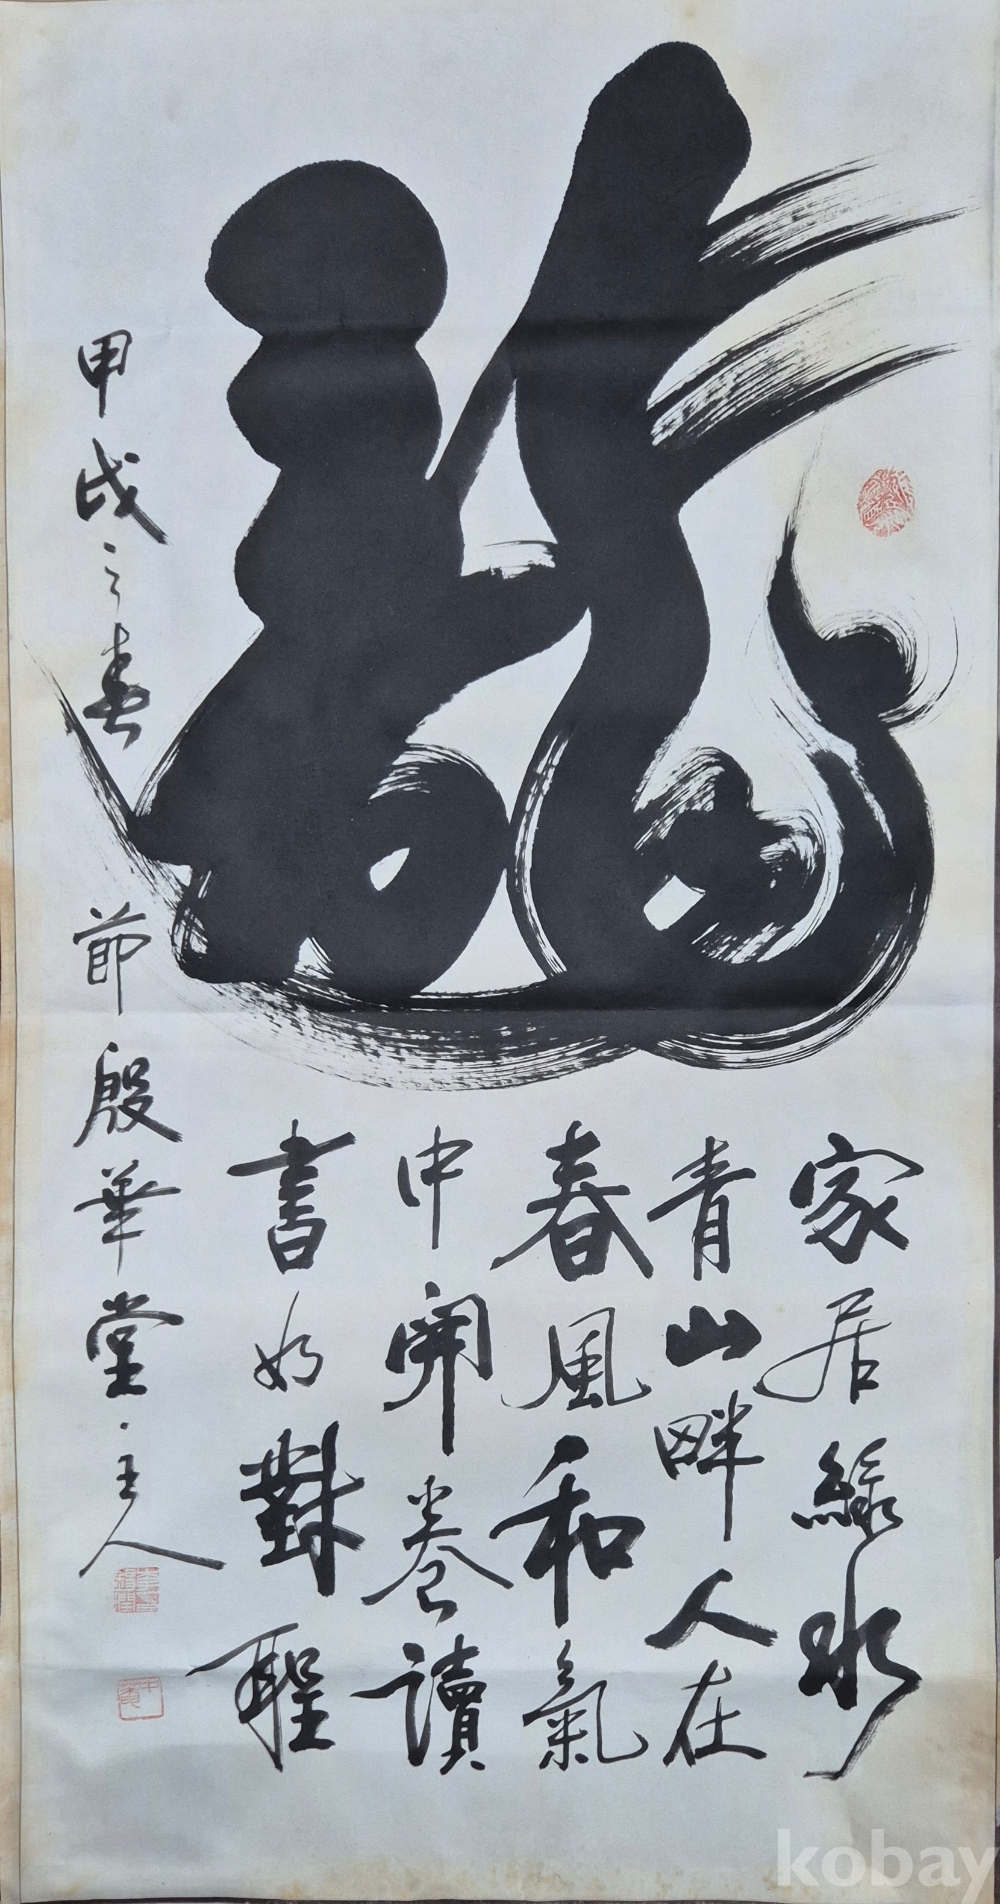 龍
家居綠水
青山畔人在
春風和氣
中開卷讀
書如對聖
甲戌之春 節殷華堂主人
kobay